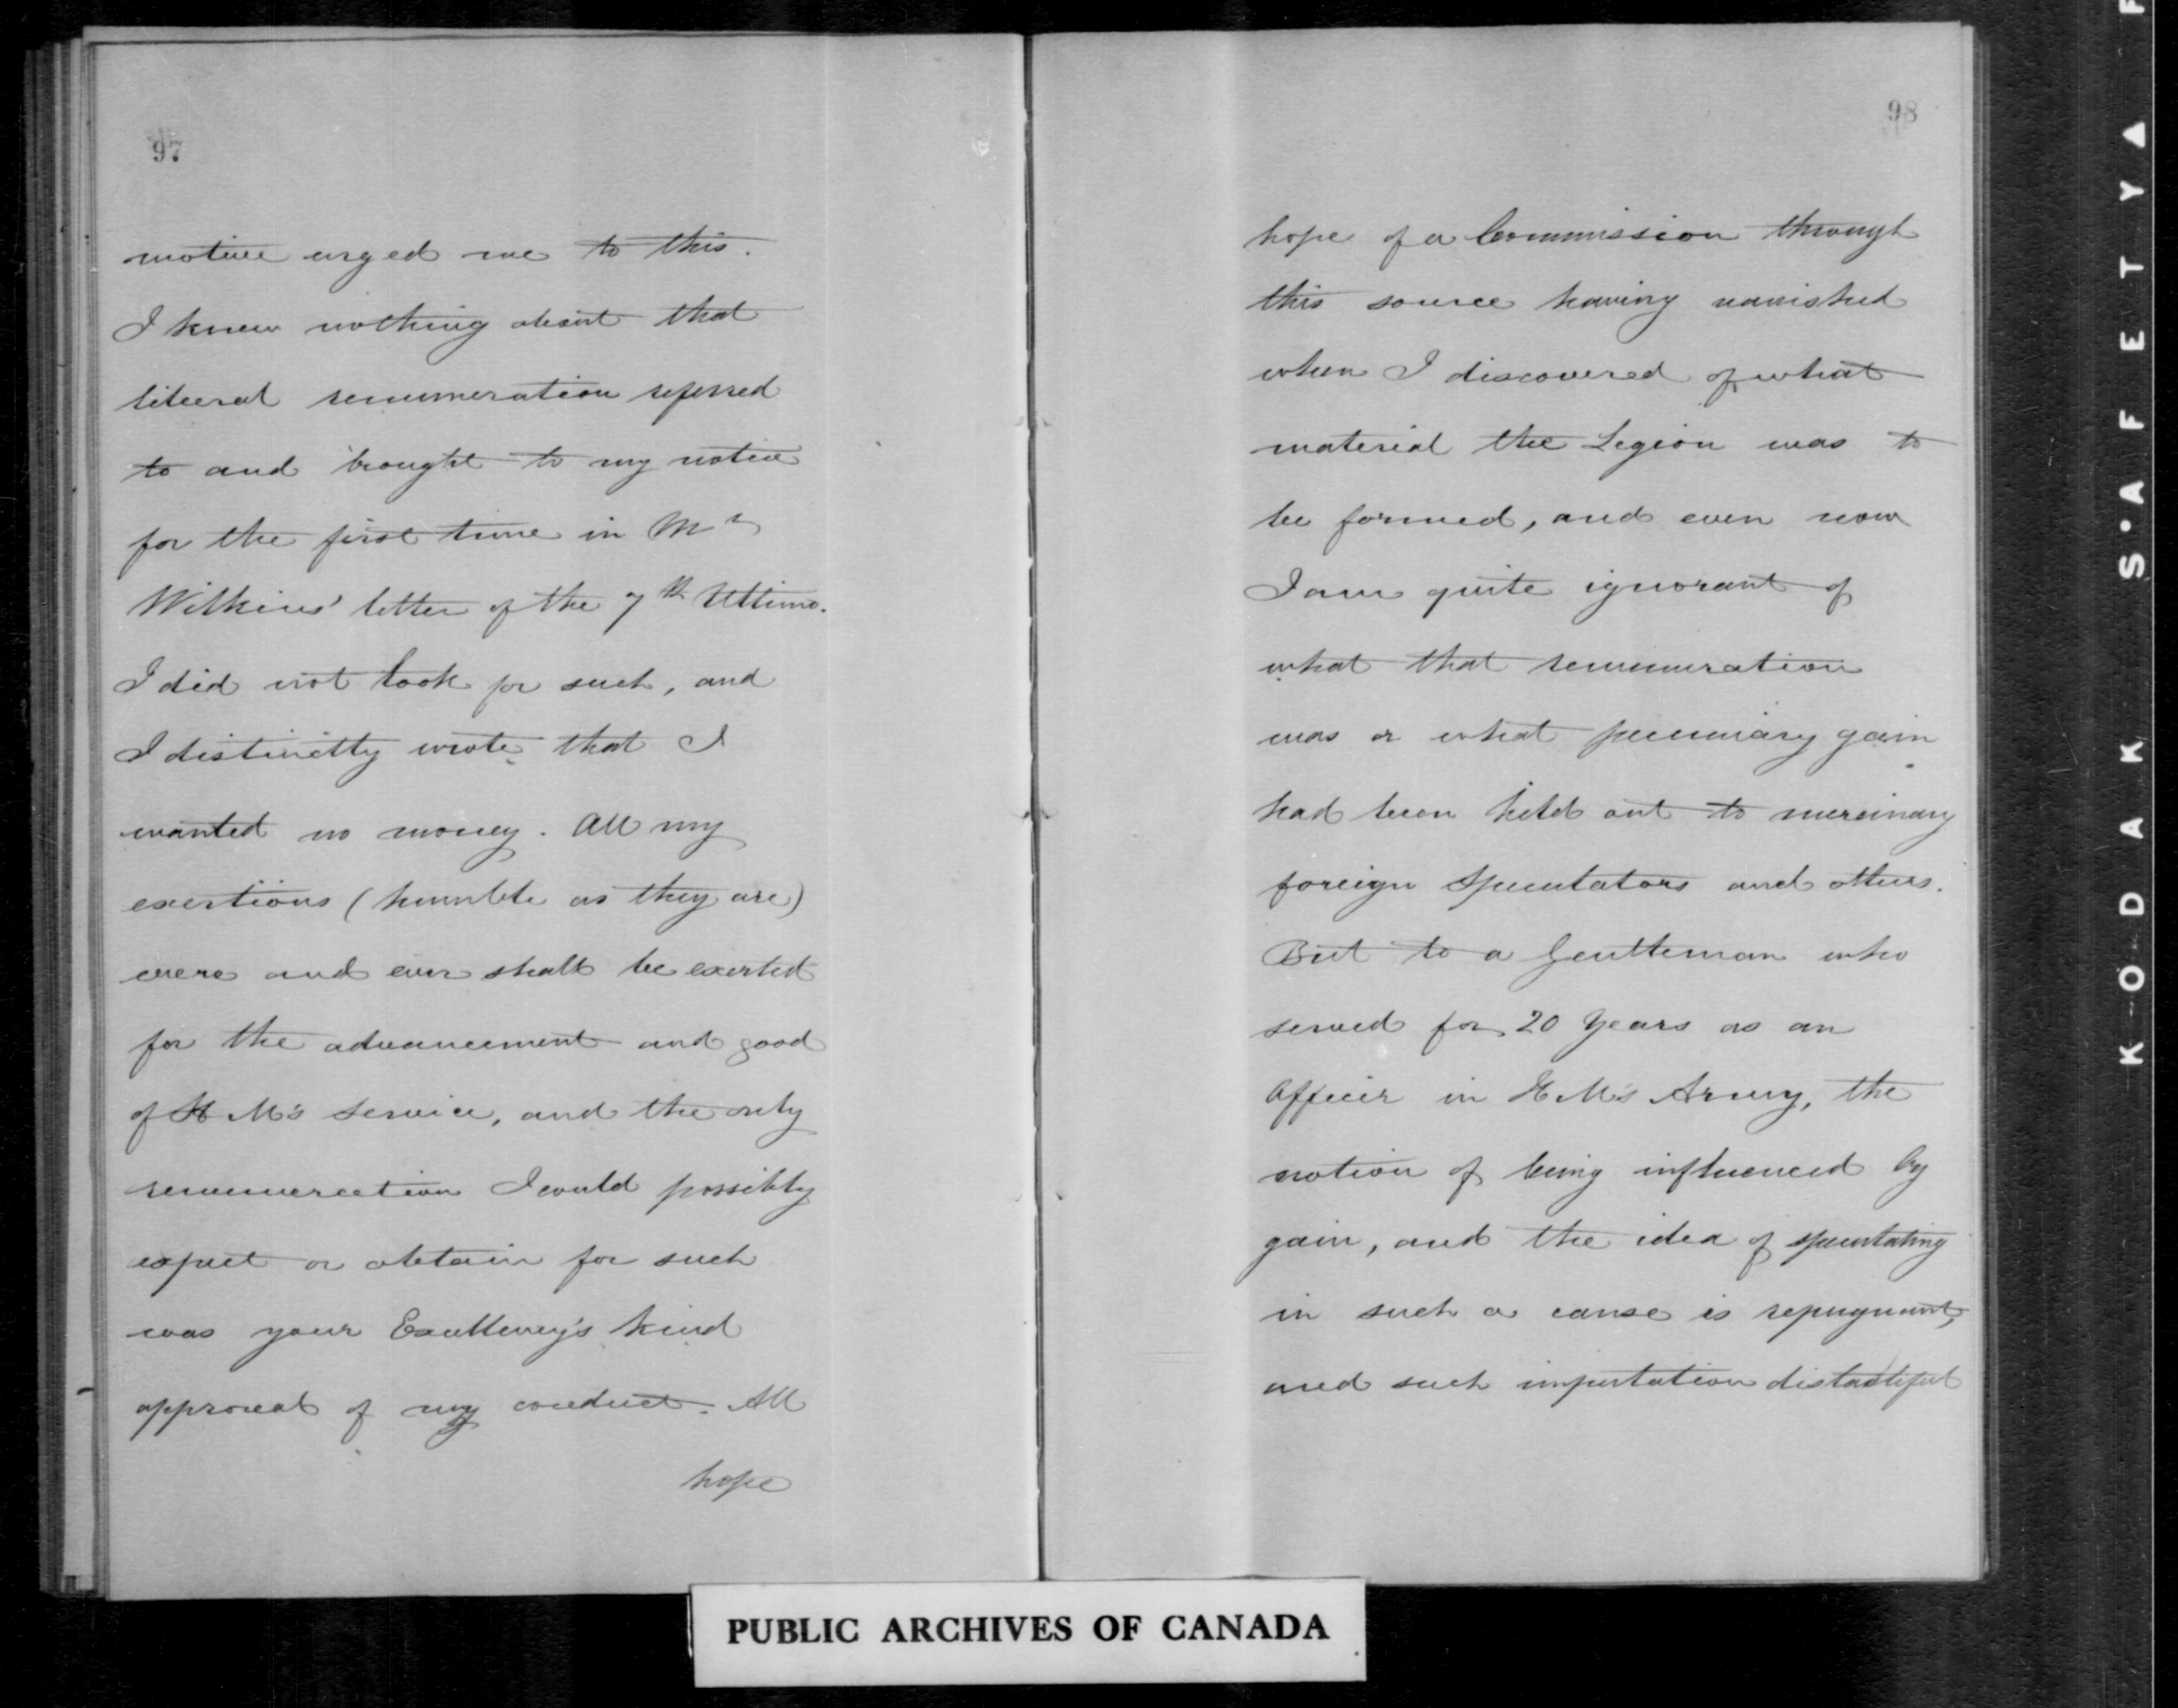 97
motive urged me to this.
I knew nothing about that
liberal remuneration referred
to and brought to my notice
for the first time in Mr
Wilkins' letter of the 7th Ultimo.
I did not look for such, and
I distinctly wrote that I
wanted no money. All my
exertions (humble as they are)
were and ever shall be exerted
for the advancement and good
of H M's Service, and the only
remuneration I could possibly
expect or obtain for such
was your Excellency's kind
approval of my conduct. All
hope
98
hope of a Commission through
this source having vanished
when I discovered of what
material the Legion was to
be formed, and even now
I am quite ignorant of
what that remuneration
was or what pecuniary gain
had been held out to mercinary
foreign Speculators and others.
But to a Gentleman who
served for 20 years as an
Officer in H M's Army, the
notion of being influenced by
gain, and the idea of speculating
in such a cause is repugnant,
and such imputation distasteful
PUBLIC ARCHIVES OF CANADA
KODAK S·AFETY